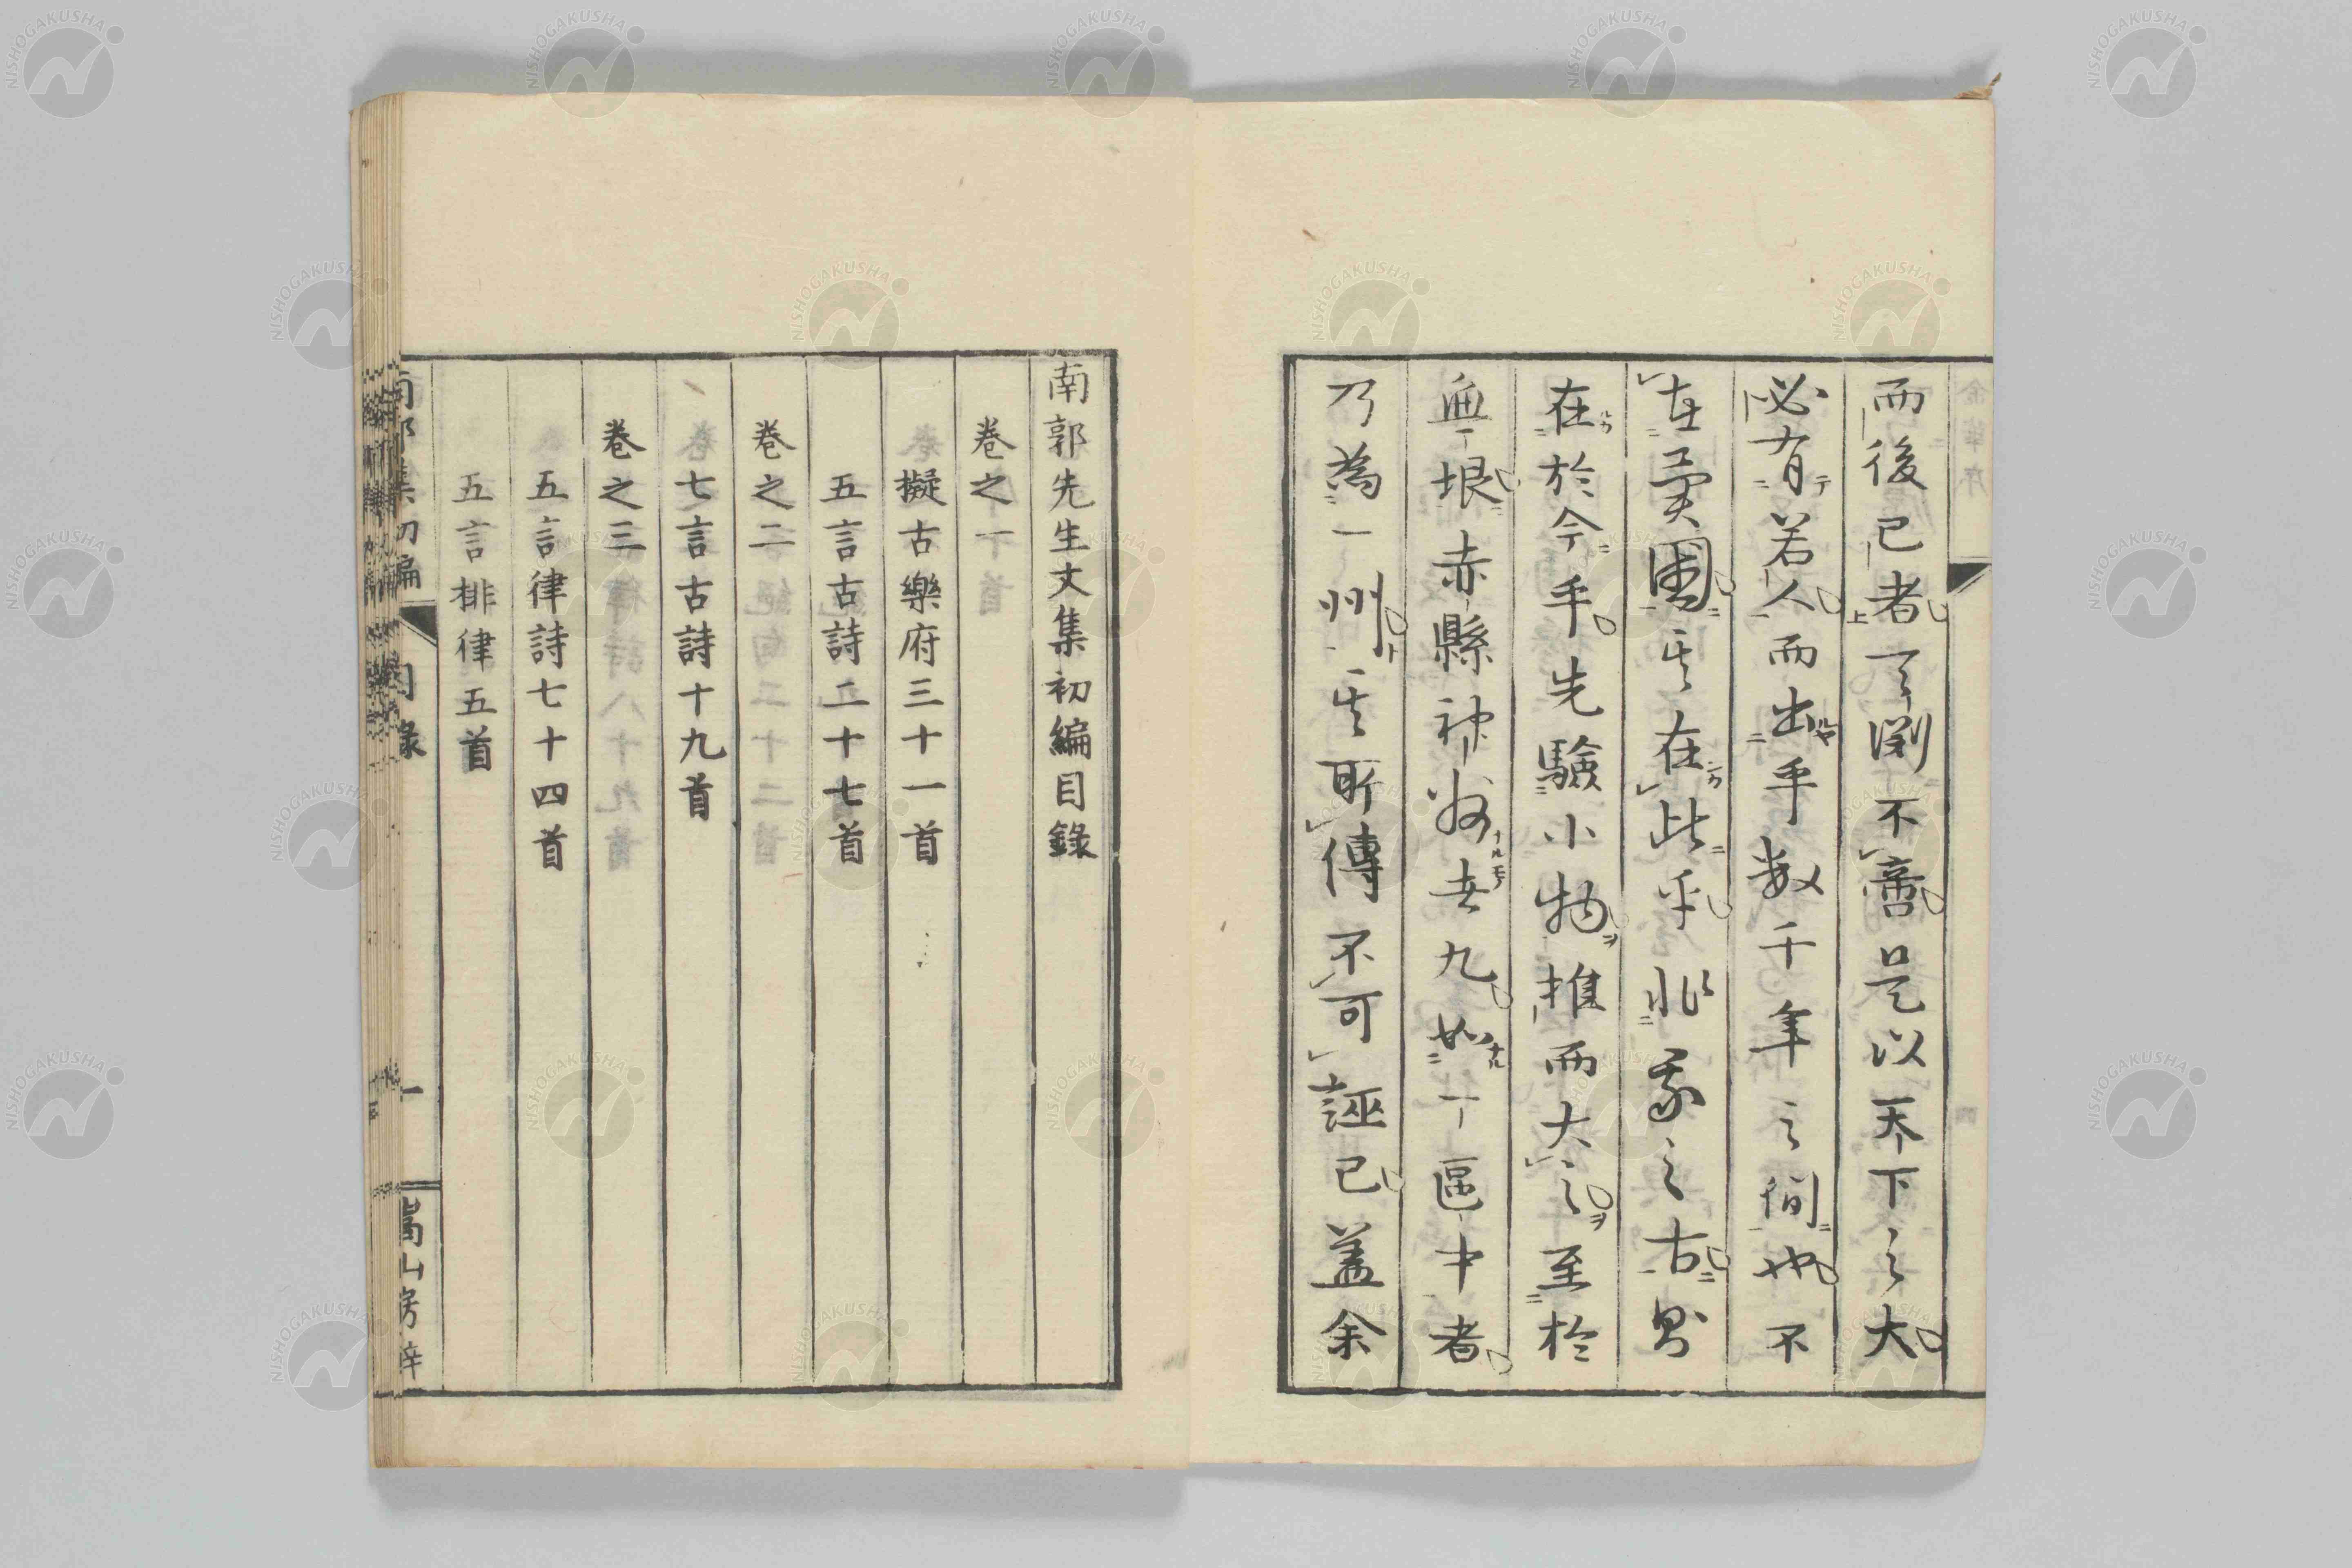 而後已者了測不啻是以天下之大
必有若人而出乎数千年之間也不
在異國其在此乎非我之古則
在於今乎先驗小物推而大之至於
無垠赤縣神州去九如一區中者
乃為一州其所傳不可誣已蓋余
南郭先生文集初編目錄
卷之一
擬古樂府三十一首
五言古詩二十七首
卷之二
七言古詩十九首
卷之三
五言律詩七十四首
五言排律五首
南郭集初編 目錄 一 嵩山房梓
NISHOGAKUSHA